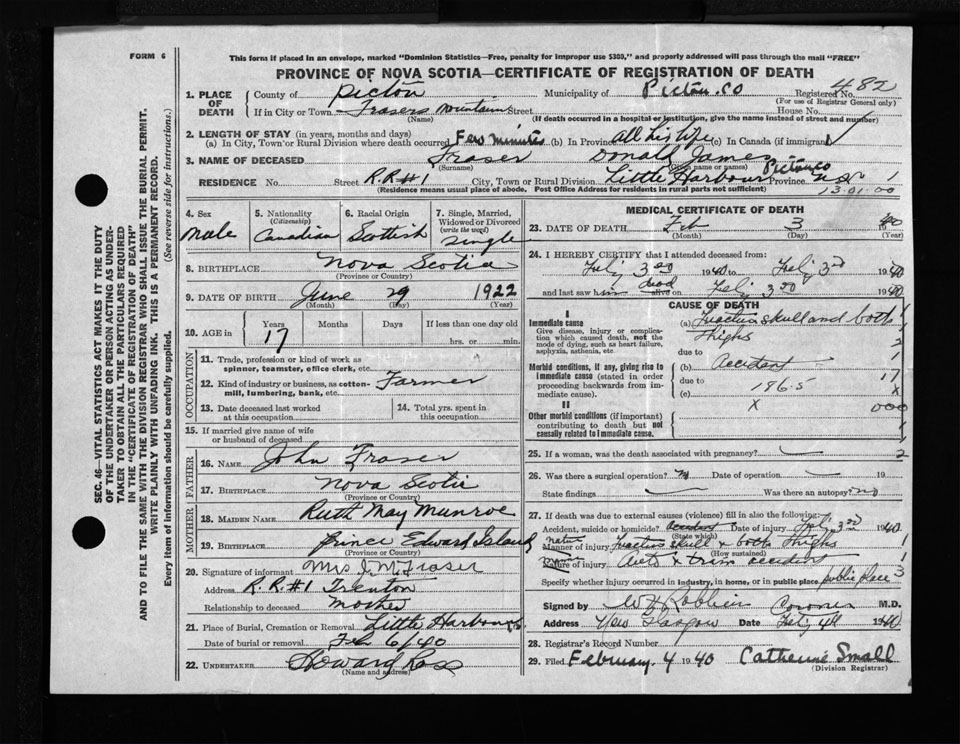 FORM 6
This form if placed in an envelope, marked "Dominion Statistics—Free, penalty for improper use $300," and properly addressed will pass through the mail "FREE"
PROVINCE OF NOVA SCOTIA—CERTIFICATE OF REGISTRATION OF DEATH
SEC. 46—VITAL STATISTICS ACT MAKES IT THE DUTY
OF THE UNDERTAKER OR PERSON ACTING AS UNDER-
TAKER TO OBTAIN ALL THE PARTICULARS REQUIRED
IN THE "CERTIFICATE OF REGISTRATION OF DEATH"
AND TO FILE THE SAME WITH THE DIVISION REGISTRAR WHO SHALL ISSUE THE BURIAL PERMIT.
WRITE PLAINLY WITH UNFADING INK. THIS IS A PERMANENT RECORD.
Every item of information should be carefully supplied. (See reverse side for instructions.)
1. PLACE OF DEATH County of Pictou Municipality of Pictou. Co Registered No. 482
(For use of Registrar General only)
If in City or Town Frasers Mountain Street House No.
(Name) (If death occurred in a hospital or institution, give the name instead of street and number)
2. LENGTH OF STAY (in years, months and days)
(a) In City, Town or Rural Division where death occurred Few minutes (b) In Province all his life (c) In Canada (if immigrant)
3. NAME OF DECEASED Fraser Donald James
(Surname)
RESIDENCE No. Street R.R#1 City, Town or Rural Division Little Harbour Pictou Co Province N.S.
(Residence means usual place of abode. Post Office Address for residents in rural parts not sufficient) 13.01.00
4. Sex Male
5. Nationality (Citizenship) Canadian
6. Racial Origin Scottish
7. Single, Married, Widowed or Divorced (write the word) Single
8. BIRTHPLACE Nova Scotia
(Province or Country)
9. DATE OF BIRTH June 29 1922
(Month) (Day) (Year)
10. AGE in Years Months Days If less than one day old
17 hrs. or min.
OCCUPATION
11. Trade, profession or kind of work as spinner, teamster, office clerk, etc.
12. Kind of industry or business, as cotton-mill, lumbering, bank, etc. Farmer
13. Date deceased last worked at this occupation
14. Total yrs. spent in this occupation
15. If married give name of wife or husband of deceased
FATHER
16. NAME John Fraser
17. BIRTHPLACE Nova Scotia
(Province or Country)
MOTHER
18. MAIDEN NAME Ruth May Munroe
19. BIRTHPLACE Prince Edward Island
(Province or Country)
20. Signature of informant Mrs J. M. Fraser
Address R.R.#1 Trenton
Relationship to deceased mother
21. Place of Burial, Cremation or Removal Little Harbour
Date of burial or removal Feb 6/40
22. UNDERTAKER Howard Ross
(Name and address)
MEDICAL CERTIFICATE OF DEATH
23. DATE OF DEATH Feb 3 40
(Month) (Day) (Year)
24. I HEREBY CERTIFY that I attended deceased from:
Feby 3rd 1940 to Feby 3rd 1940
and last saw him dead alive on Feby 3rd 1940
CAUSE OF DEATH
I
Immediate cause
Give disease, injury or complication which caused death, not the mode of dying, such as heart failure, asphyxia, asthenia, etc.
(a) Fracture skull and both thighs
due to
Morbid conditions, if any, giving rise to immediate cause (stated in order proceeding backwards from immediate cause).
(b) Accident
due to 186.5
(c)
II
Other morbid conditions (if important) contributing to death but not causally related to immediate cause.
X
25. If a woman, was the death associated with pregnancy?
26. Was there a surgical operation? no Date of operation 19
State findings Was there an autopsy? no
27. If death was due to external causes (violence) fill in also the following:
Accident, suicide or homicide? Accident Date of injury Feby 3rd 1940
(State which)
Nature Manner of injury Fracture skull & both thighs
(How sustained)
Nature of injury Auto & train accident
Specify whether injury occurred in industry, in home, or in public place public place
Signed by Coroner M.D.
Address New Glasgow Date Feby 4th 1940
28. Registrar's Record Number
29. Filed February. 4 1940 Catherine Small
(Division Registrar)